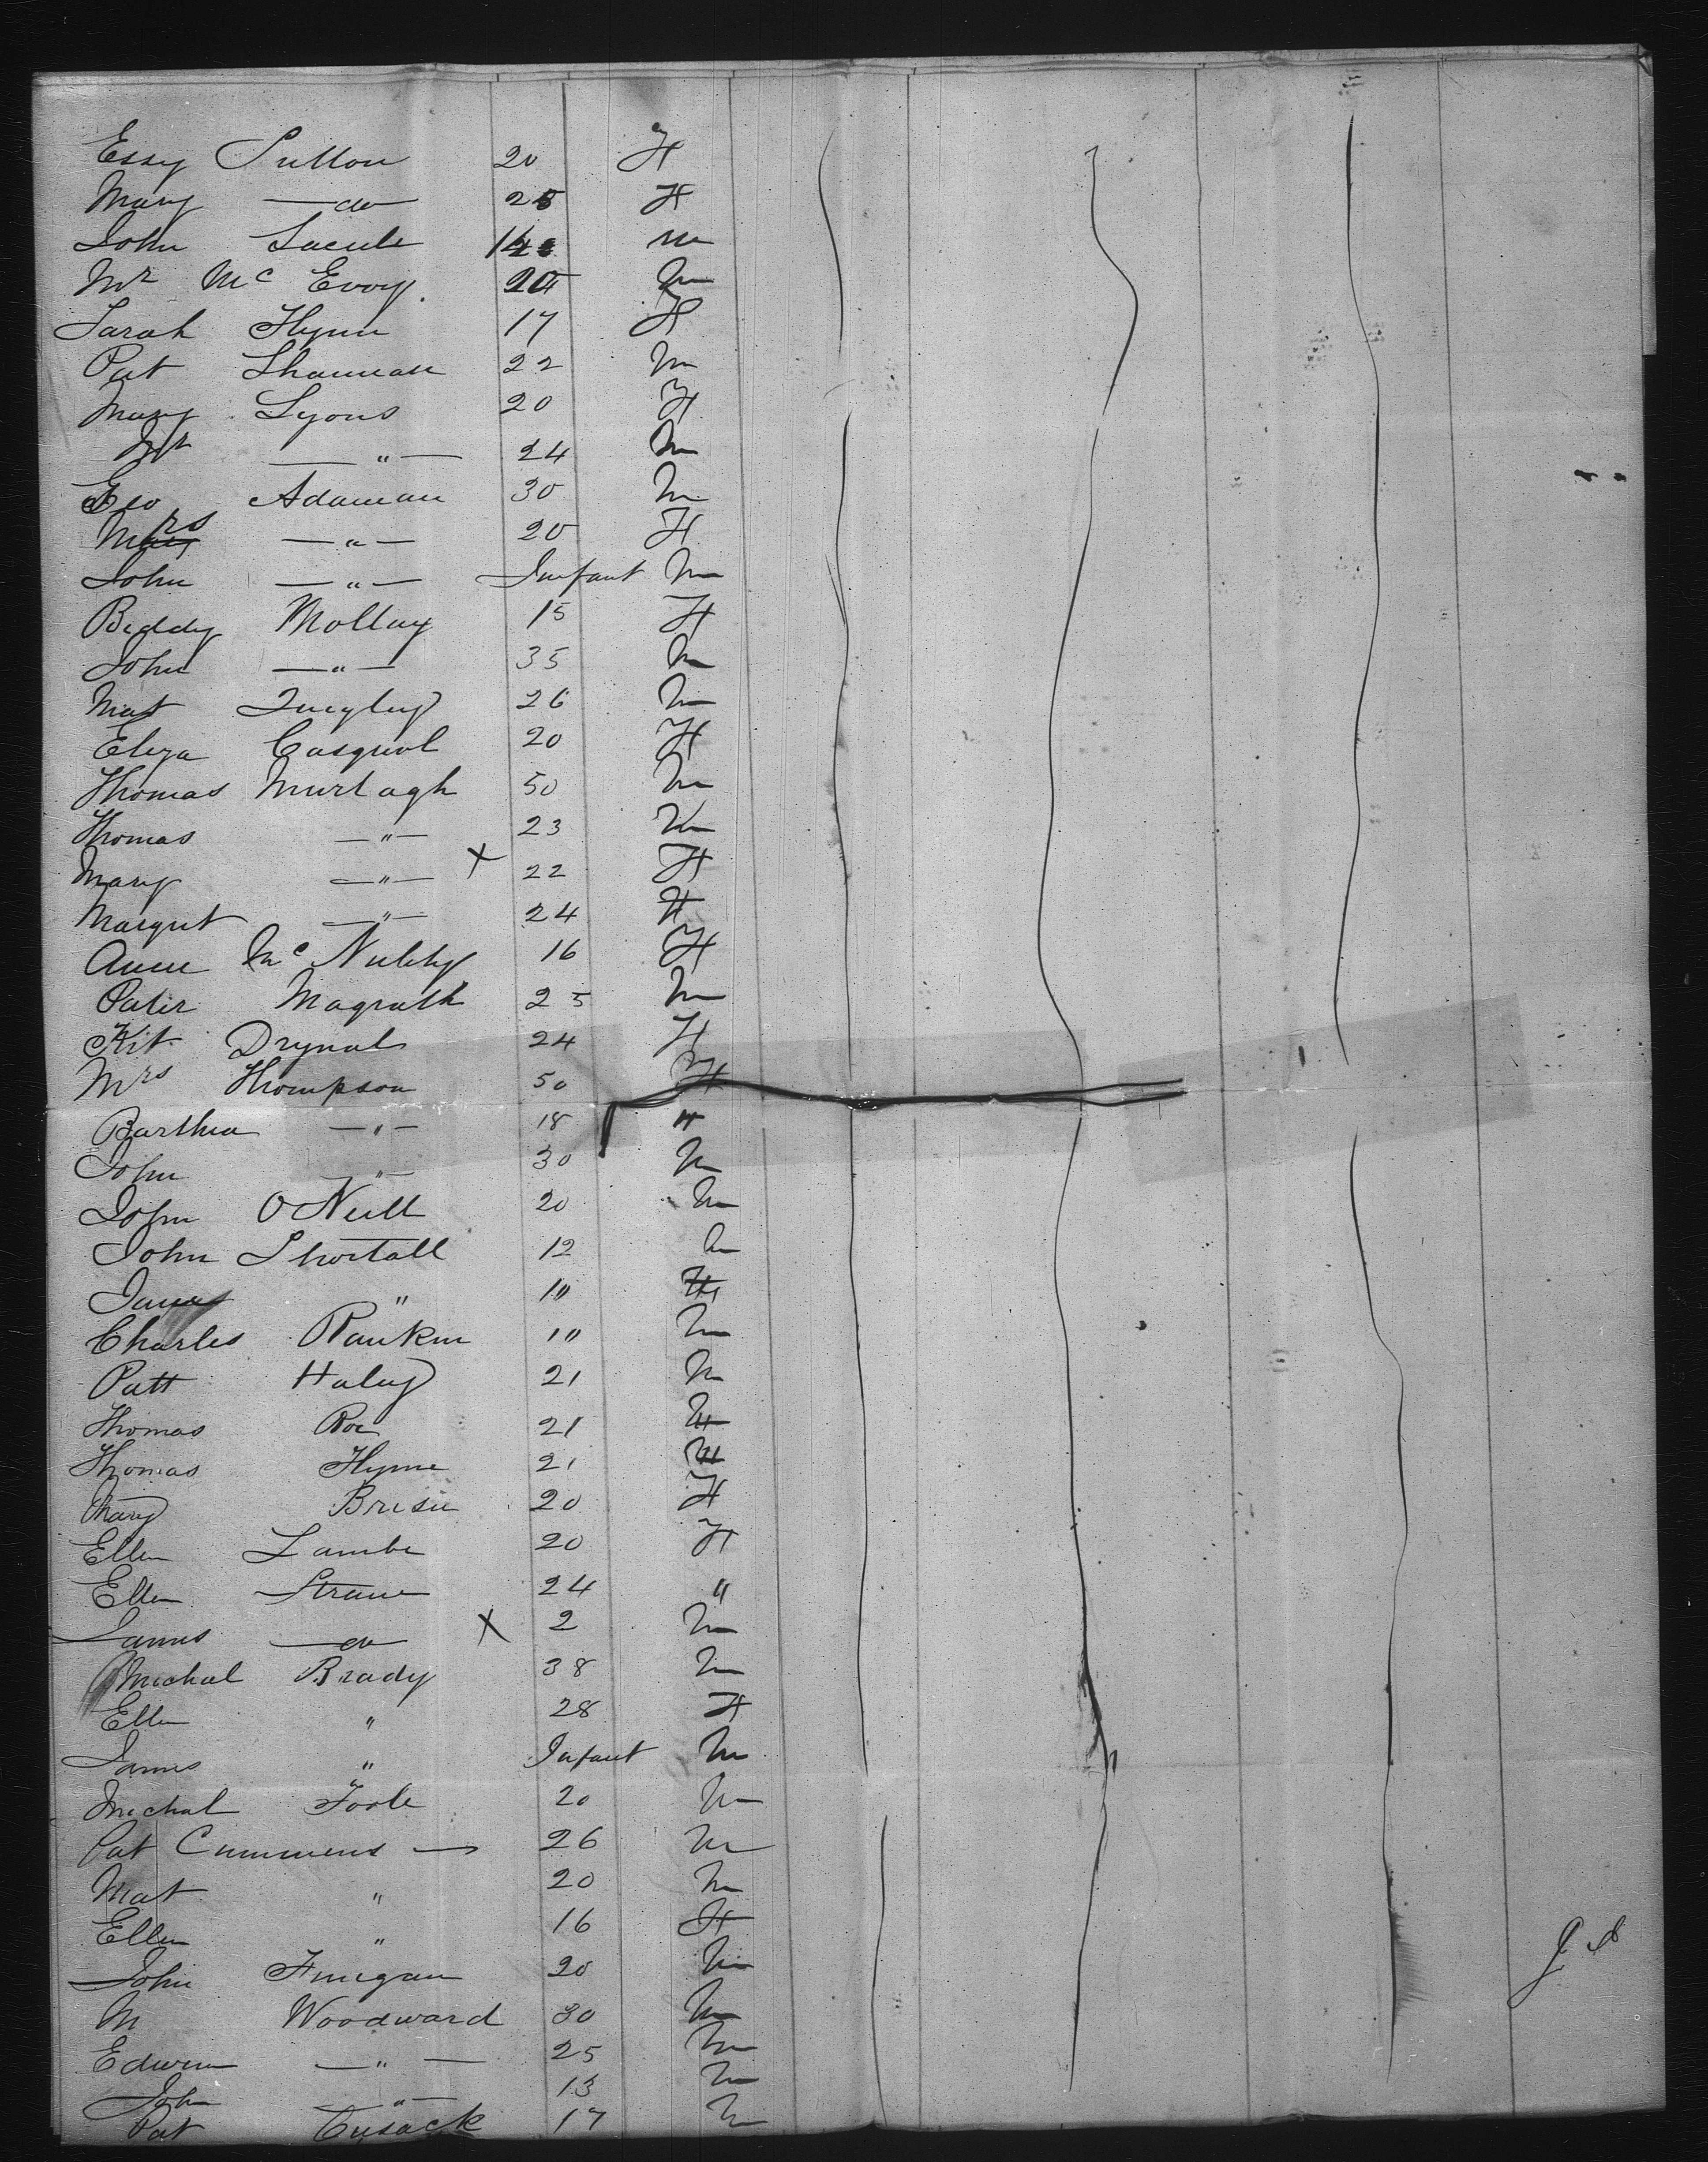 Essy Sutton 20 F
Mary — do — 25 F
John 14 m
Mr Mc Evoy 20 m
Sarah Flynn 17 F
Pat Shannan 22 m
Mary Lyons 20 F
Mr — " — 24 m
Geo Adaman 30 m
Mrs — " — 20 F
John — " — Infant m
Biddy Molloy 15 F
John — " — 35 m
Mat Quigley 26 m
Eliza 20 F
Thomas Murtagh 50 m
Thomas — " — 23 m
Mary — " — X 22 F
Margret — " — 24 F
Anne Mc Nulty 16 F
Peter Magrath 25 m
Kit Drynal 24 F
Mrs Thompson 50 F
Barthia — " — 18 "
John — " — 30 m
John O Neill 20 m
John Shortall 12 m
James " 10 m
Charles Rankin 10 m
Patt Haley 21 m
Thomas Roe 21 m
Thomas Flynne 21 m
Mary 20 F
Ellen Lambe 20 F
Ellen 24 "
James — do X 2 m
Michal Brady 38 m
Ellen " 28 F
James " Infant m
Michal Toole 20 m
Pat Cummens — 26 m
Mat " 20 m
Ellen " 16 F
John Finegan 20 m
M Woodward 30 m
Edwin — " — 25 m
John — " — 13 m
Pat Cusack 17 m